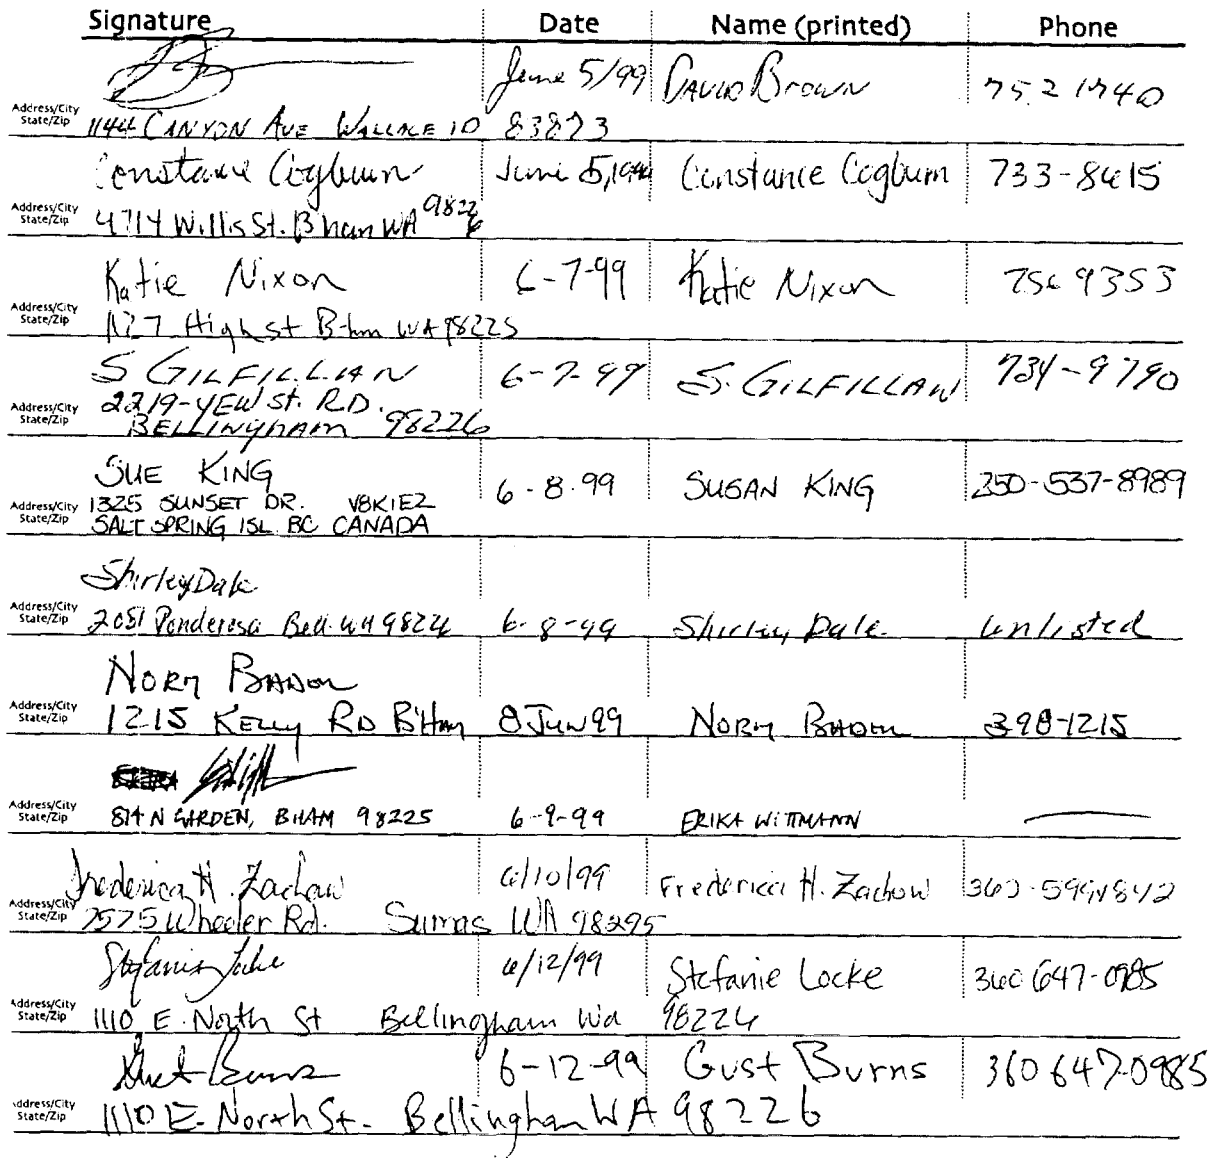 Signature Date Name (printed) Phone
June 5/99 David Brown 752 1740
Address/City
State/Zip 1144 Canyon Ave Wallace ID 83873
Constance Cogburn June 5, 1999 Constance Cogburn 733-8615
Address/City
State/Zip 4714 Willis St. B'ham WA 98226
Katie Nixon 6-7-99 Katie Nixon 756 9353
Address/City
State/Zip High St B-ham WA 98225
S GILFILLIAN 6-7-99 S. GILFILLAN 734-9790
Address/City
State/Zip 2219-YEW St. RD.
BELLINGHAM 98226
SUE KING 6-8-99 SUSAN KING 250-537-8989
Address/City
State/Zip 1325 SUNSET DR. V8K1E2
SALT SPRING ISL. BC CANADA
Shirley Dale
Address/City
State/Zip 2051 Ponderosa Bell. WA 98226 6-8-99 Shirley Dale Unlisted
Norm Baden
Address/City
State/Zip 1215 Kelly Rd B'Ham 8 Jun 99 Norm Baden 398-1215
Address/City
State/Zip 814 N GARDEN, BHAM 98225 6-9-99 ERIKA WITTMANN
Frederica H. Zachow 6/10/99 Frederica H. Zachow 360-599
Address/City
State/Zip 7575 Wheeler Rd. Sumas WA 98295
Stefanie Locke 6/12/99 Stefanie Locke 360 647-0985
Address/City
State/Zip 1110 E. North St Bellingham Wa 98226
Gust Burns 6-12-99 Gust Burns 360 647-0985
Address/City
State/Zip 1110 E. North St. Bellingham WA 98226